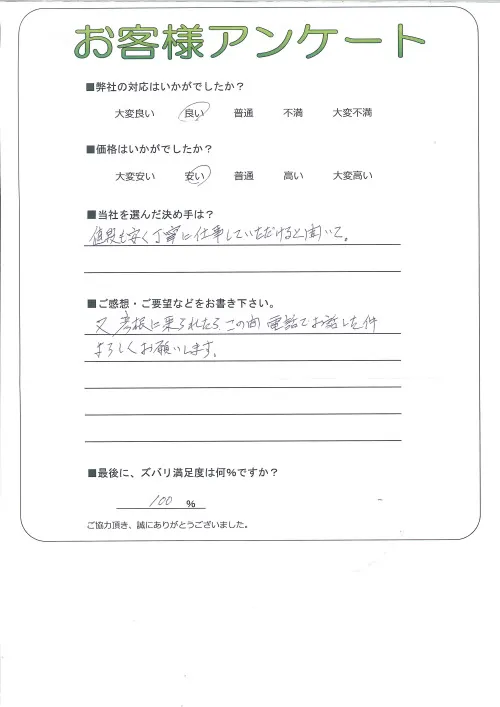 お客様アンケート
■弊社の対応はいかがでしたか？
大変良い 良い 普通 不満 大変不満
■価格はいかがでしたか？
大変安い 安い 普通 高い 大変高い
■当社を選んだ決め手は？
値段も安く丁寧に仕事していただけると聞いて。
■ご感想・ご要望などをお書き下さい。
又 彦根に来られたら この間 電話でお話した件
よろしくお願いします。
■最後に、ズバリ満足度は何％ですか？
100 ％
ご協力頂き、誠にありがとうございました。